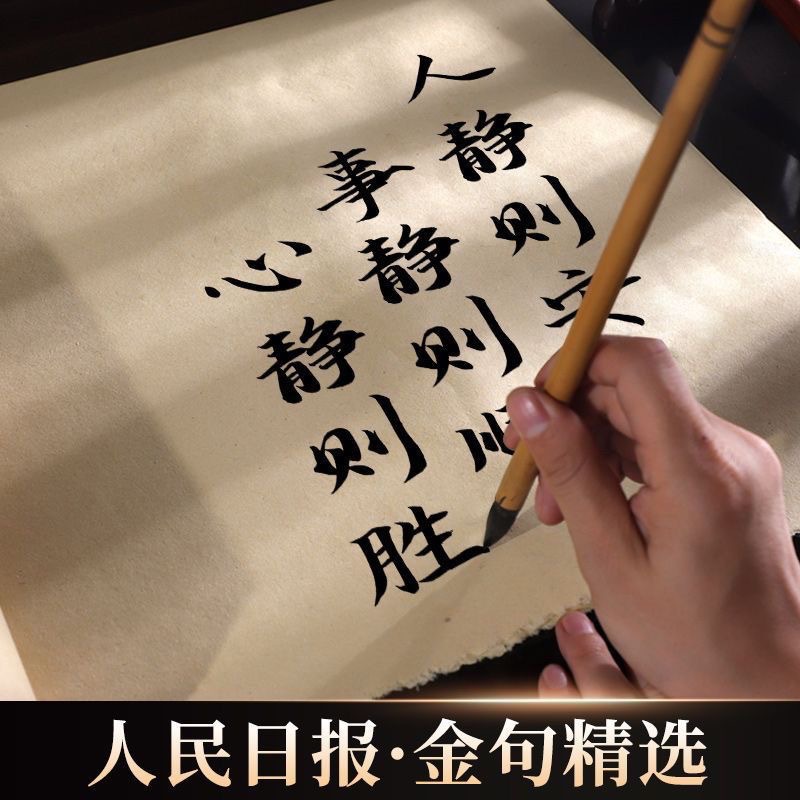 人静则实
事静则顺
心静则胜
人民日报·金句精选